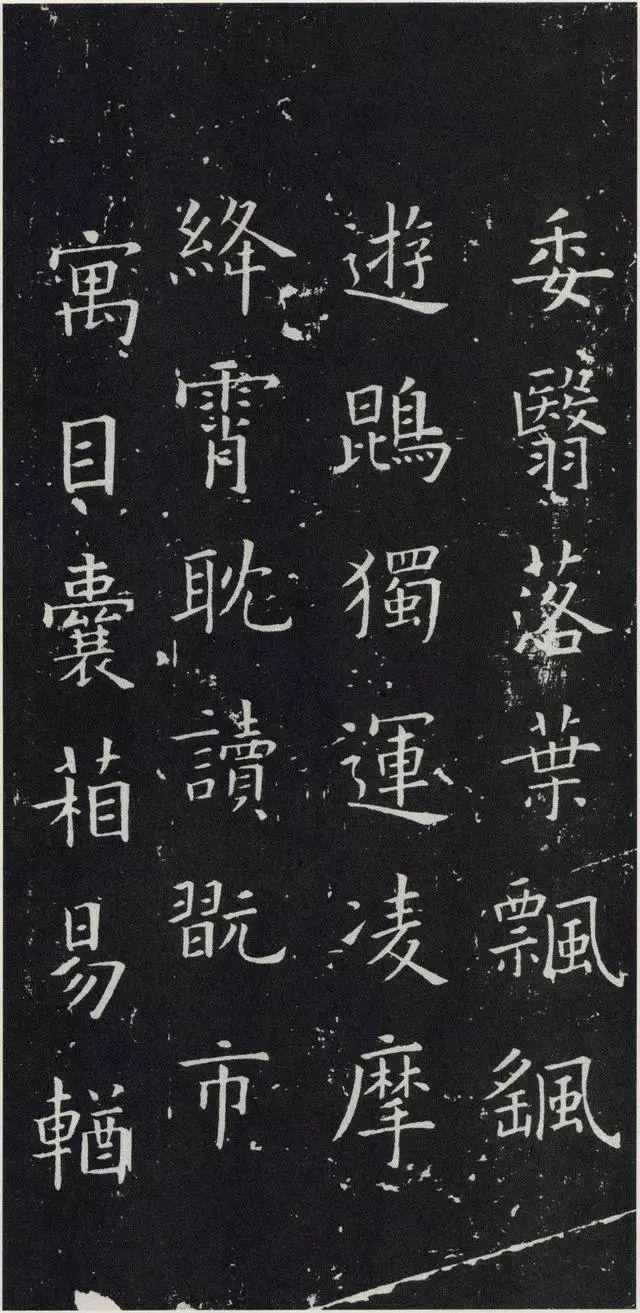 委翳落葉飄颻
遊鵾獨運凌摩
絳霄耽讀翫市
寓目囊箱易輶